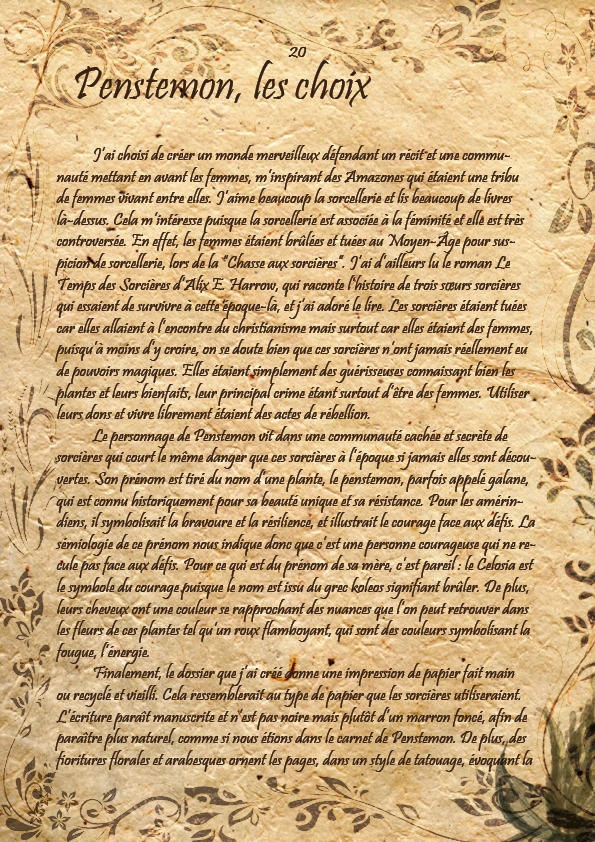 20
Penstemon, les choix
J'ai choisi de créer un monde merveilleux défendant un récit et une commu-
nauté mettant en avant les femmes, m'inspirant des Amazones qui étaient une tribu
de femmes vivant entre elles. J'aime beaucoup la sorcellerie et lis beaucoup de livres
là-dessus. Cela m'intéresse puisque la sorcellerie est associée à la féminité et elle est très
controversée. En effet, les femmes étaient brûlées et tuées au Moyen-Âge pour sus-
picion de sorcellerie, lors de la "Chasse aux sorcières". J'ai d'ailleurs lu le roman Le
Temps des Sorcières d'Alix E. Harrow, qui raconte l'histoire de trois sœurs sorcières
qui essaient de survivre à cette époque-là, et j'ai adoré le lire. Les sorcières étaient tuées
car elles allaient à l'encontre du christianisme mais surtout car elles étaient des femmes,
puisqu'à moins d'y croire, on se doute bien que ces sorcières n'ont jamais réellement eu
de pouvoirs magiques. Elles étaient simplement des guérisseuses connaissant bien les
plantes et leurs bienfaits, leur principal crime étant surtout d'être des femmes. Utiliser
leurs dons et vivre librement étaient des actes de rébellion.
Le personnage de Penstemon vit dans une communauté cachée et secrète de
sorcières qui court le même danger que ces sorcières à l'époque si jamais elles sont décou-
vertes. Son prénom est tiré du nom d'une plante, le penstemon, parfois appelé galane,
qui est connu historiquement pour sa beauté unique et sa résistance. Pour les amérin-
diens, il symbolisait la bravoure et la résilience, et illustrait le courage face aux défis. La
sémiologie de ce prénom nous indique donc que c'est une personne courageuse qui ne re-
cule pas face aux défis. Pour ce qui est du prénom de sa mère, c'est pareil : le Celosia est
le symbole du courage puisque le nom est issu du grec koleos signifiant brûler. De plus,
leurs cheveux ont une couleur se rapprochant des nuances que l'on peut retrouver dans
les fleurs de ces plantes tel qu'un roux flamboyant, qui sont des couleurs symbolisant la
fougue, l'énergie.
Finalement, le dossier que j'ai créé donne une impression de papier fait main
ou recyclé et vieilli. Cela ressemblerait au type de papier que les sorcières utiliseraient.
L'écriture paraît manuscrite et n'est pas noire mais plutôt d'un marron foncé, afin de
paraître plus naturel, comme si nous étions dans le carnet de Penstemon. De plus, des
fioritures florales et arabesques ornent les pages, dans un style de tatouage, évoquant la